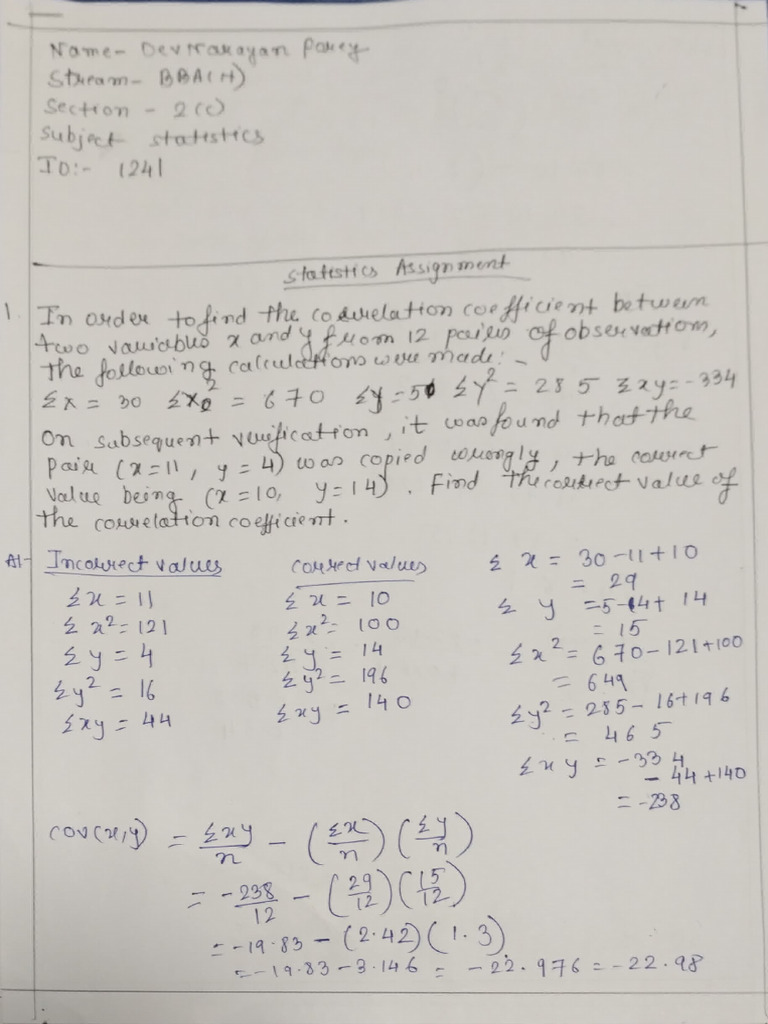 Name- DevNarayan Parey
Stream- BBA(H)
Section - 2(C)
Subject statistics
ID:- 1241
Statistics Assignment
1. In order to find the correlation coefficient between
two variables x and y from 12 pairs of observations,
the following calculations were made:-
Σx = 30 Σx² = 670 Σy = 5 Σy² = 285 Σxy = -334
On subsequent verification, it was found that the
pair (x=11, y=4) was copied wrongly, the correct
value being (x=10, y=14). Find the correct value of
the correlation coefficient.
A1- Incorrect values
Σx = 11
Σx² = 121
Σy = 4
Σy² = 16
Σxy = 44
correct values
Σx = 10
Σx² = 100
Σy = 14
Σy² = 196
Σxy = 140
Σx = 30-11+10
= 29
Σy = 5-4+14
= 15
Σx² = 670-121+100
= 649
Σy² = 285-16+196
= 465
Σxy = -334
- 44+140
= -238
cov(x,y) = Σxy/n - (Σx/n)(Σy/n)
= -238/12 - (29/12)(15/12)
= -19.83 - (2.42)(1.3)
= -19.83 - 3.146 = -22.976 = -22.98